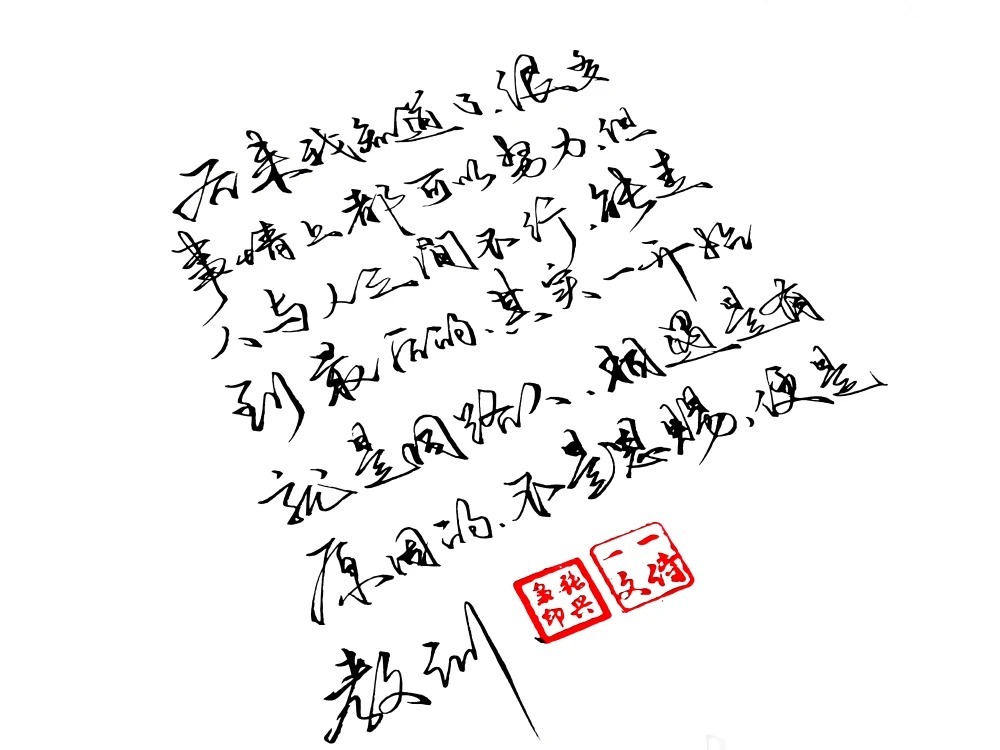 后来我知道了.很多
事情上都可以努力.但
人与人之间不行.能走
到最后的.其实一开始
就是同路人.相遇是有
原因的.不是恩赐、便是
教训
张兴
印
一一
文诗